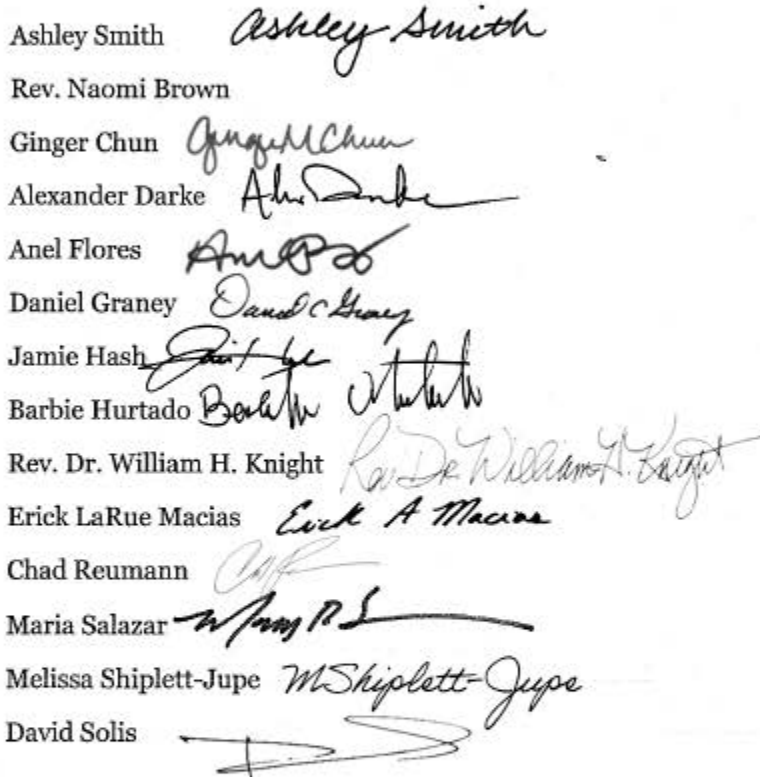 Ashley Smith Ashley Smith
Rev. Naomi Brown
Ginger Chun Ginger M Chun
Alexander Darke Alex Darke
Anel Flores
Daniel Graney Daniel C Graney
Jamie Hash
Barbie Hurtado
Rev. Dr. William H. Knight Rev. Dr. William H. Knight
Erick LaRue Macias Erick A Macias
Chad Reumann
Maria Salazar
Melissa Shiplett-Jupe M Shiplett-Jupe
David Solis